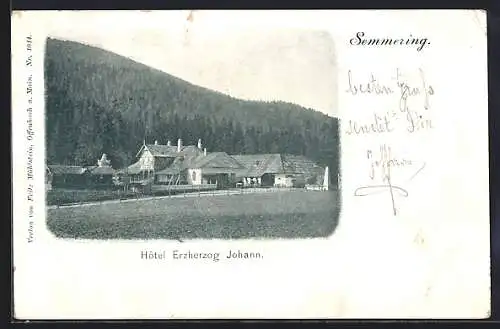 Semmering.
besten Gruß
sendet Dir
Johann
Hôtel Erzherzog Johann.
Verlag von Fritz Mühlstein, Offenbach a. Main. No. 1044.